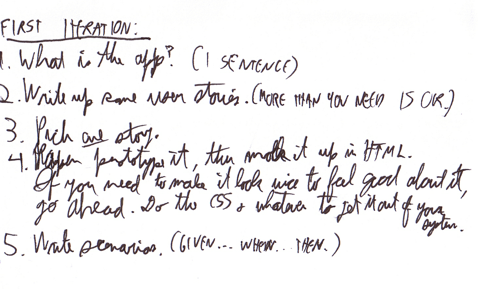 FIRST ITERATION:
1. What is the app? (1 SENTENCE)
2. Write up some user stories. (MORE THAN YOU NEED IS OK.)
3. Pick one story.
4. Paper prototype it, then mock it up in HTML.
If you need to make it look nice to feel good about it,
go ahead. Do the CSS & whatever to get it out of your
system.
5. Write scenarios. (GIVEN... WHEN... THEN.)